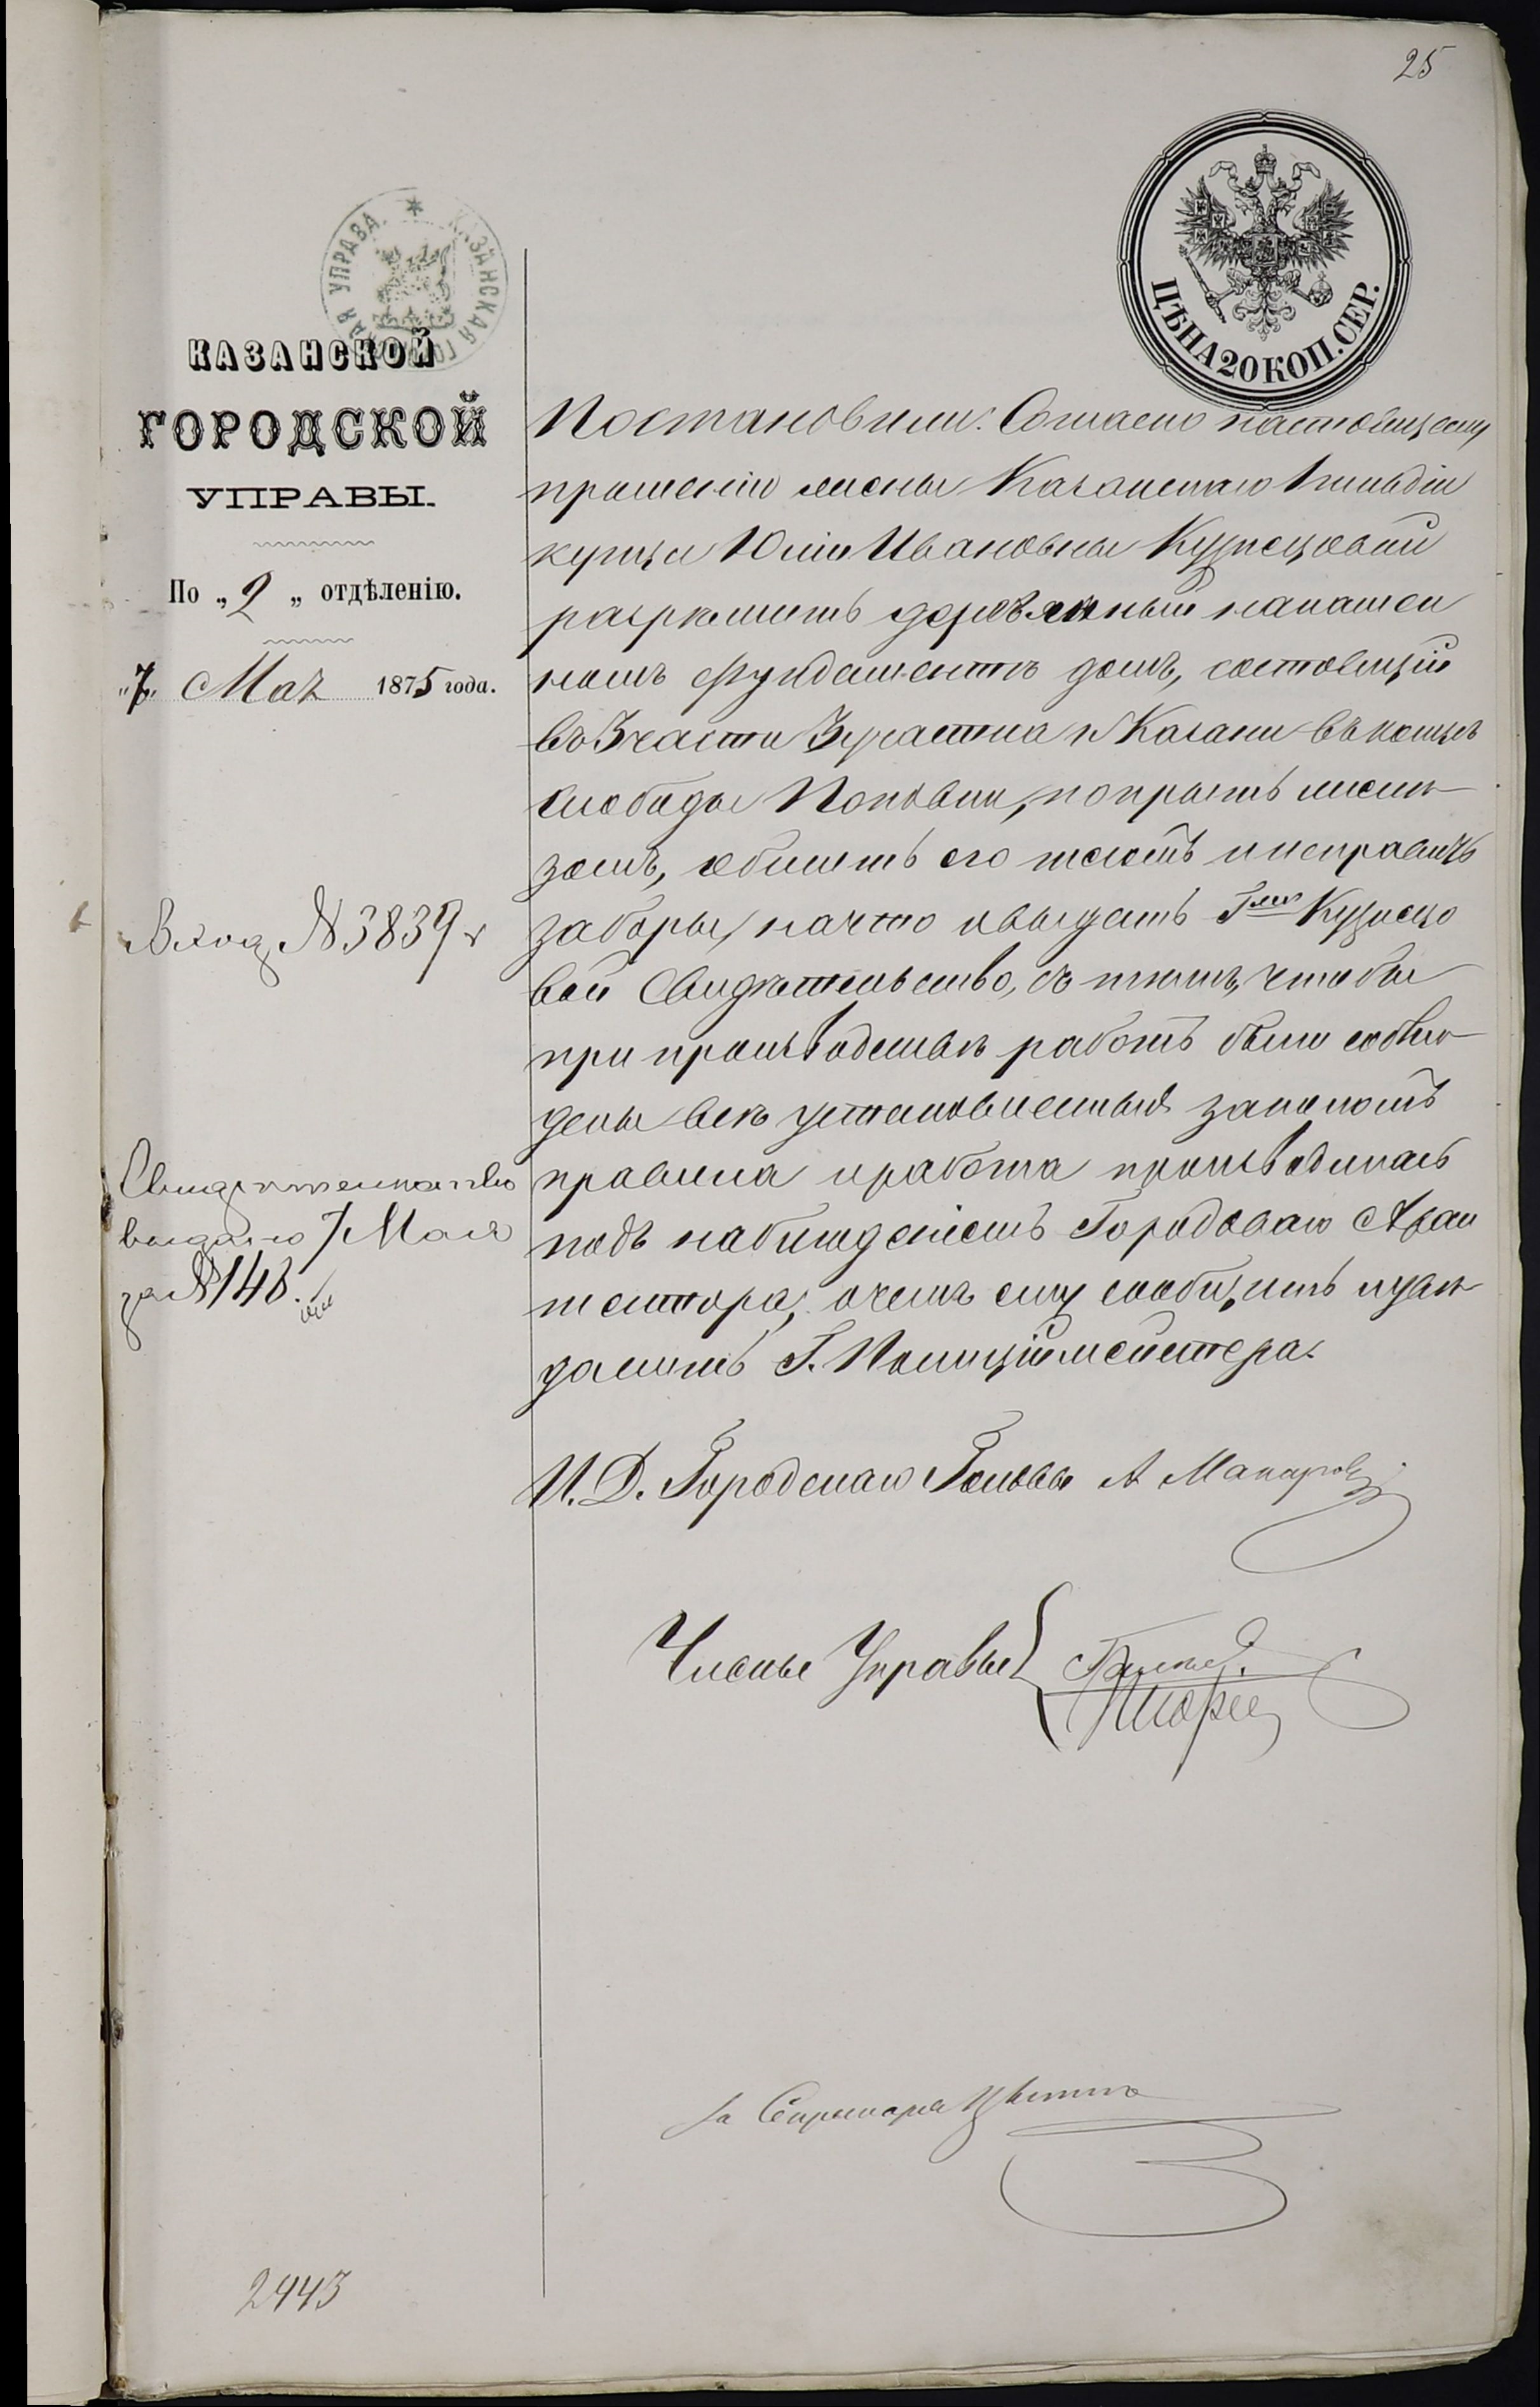 25
КАЗАНСКАЯ ГОРОДСКАЯ УПРАВА
ЦѢНА 20 КОП. СЕР.
КАЗАНСКОЙ
ГОРОДСКОЙ
УПРАВЫ.
По „2„ отдѣленію.
„7„ Мая 1875 года.
Вход № 3839
Свидѣтельство
выдано 7 Мая
за № 148.
2443
Постановили: Согласно настоящему
прошенію жены Казанскаго 1 гильдіи
купца Юліи Ивановны Кузнецовой
разрѣшить деревянный на камен
номъ фундаментѣ домъ, состоящій
въ 3 части 3 участка г. Казани въ концѣ
слободы Поповки, покрыть желѣ
зомъ, обшить его тесомъ и исправить
заборы, на что и выдать Г-жѣ Кузнецо
вой Свидѣтельство, съ тѣмъ, чтобы
при производствѣ работъ были соблю
дены всѣ установленныя закономъ
правила и работа производилась
подъ наблюденіемъ Городоваго Архи
тектора, о чемъ ему сообщить и увѣ
домить Г. Полиціймейстера.
И. Д. Городскаго Головы А Макаровъ
Члены Управы
за Секретаря